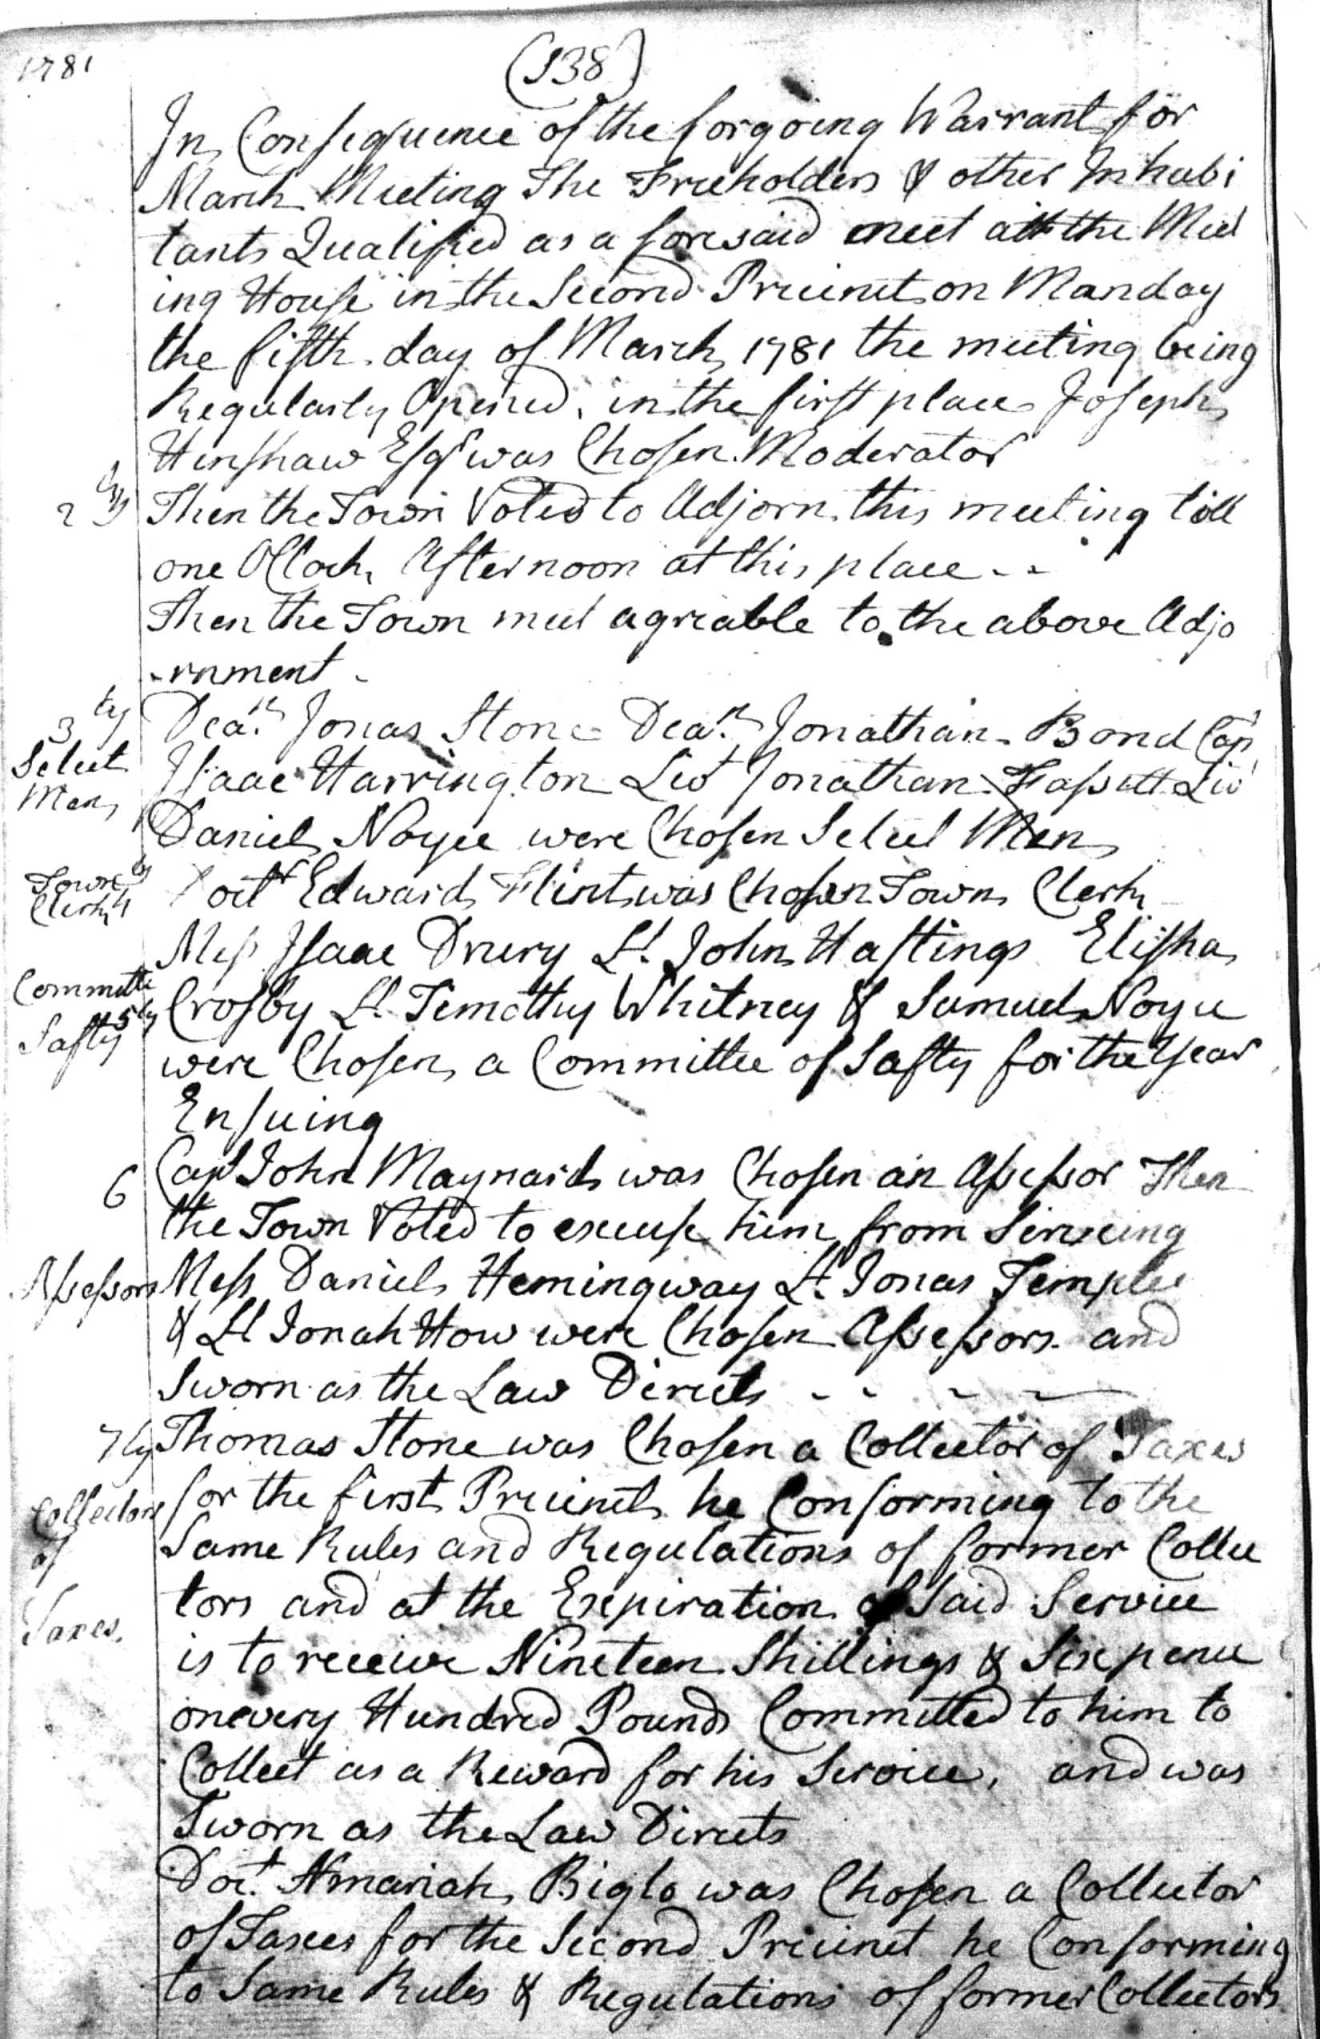 1781
(138)
In Consequence of the forgoing Warrant for
March Meeting The Freeholders & other Inhabi
tants Qualified as a foresaid meet att the Meet
ing House in the Second Precinct on Manday
the fifth day of March 1781 the meeting being
Regularly Opened, in the first place Joseph
Henshaw Esqr was Chosen Moderator
2 ly Then the Town Voted to Adjorn this meeting till
one OClock Afternoon at this place - -
Then the Town meet agreable to the above Adjo
-rnment -
3 ly Dean Jonas Stone Dean Jonathan Bond Cap
Select Isaac Harrington Liut Jonathan Fassett Liut
Men Daniel Noyce were Chosen Select Men
Town Clerk 4 ly Doctr Edward Flint was Chosen Town Clerk
Mess Isaac Drury Lt John Hastings Elisha
Committe Crosby Lt Timothy Whitney & Samuel Noyce
Safty 5 ly were Chosen a Committee of Safty for the Year
Ensuing
6 Capt John Maynard was Chosen an Assessor Then
the Town Voted to excuse him from Serveing
Assessors Mess Daniel Hemingway Lt Jonas Temple
& Lt Jonah How were Chosen Assessors and
Sworn as the Law Directs - - - -
7 ly Thomas Stone was Chosen a Collector of Taxes
Collectors for the first Precinct he Conforming to the
of Same Rules and Regulations of former Collec
tors and at the Expiration of Said Service
Taxes. is to receive Nineteen Shillings & Sixpence
on every Hundred Pounds Committed to him to
Collect as a Reward for his Service, and was
Sworn as the Law Directs
Doct. Amariah Biglo was Chosen a Collector
of Taxes for the Second Precinct he Conforming
to Same Rules & Regulations of former Collectors